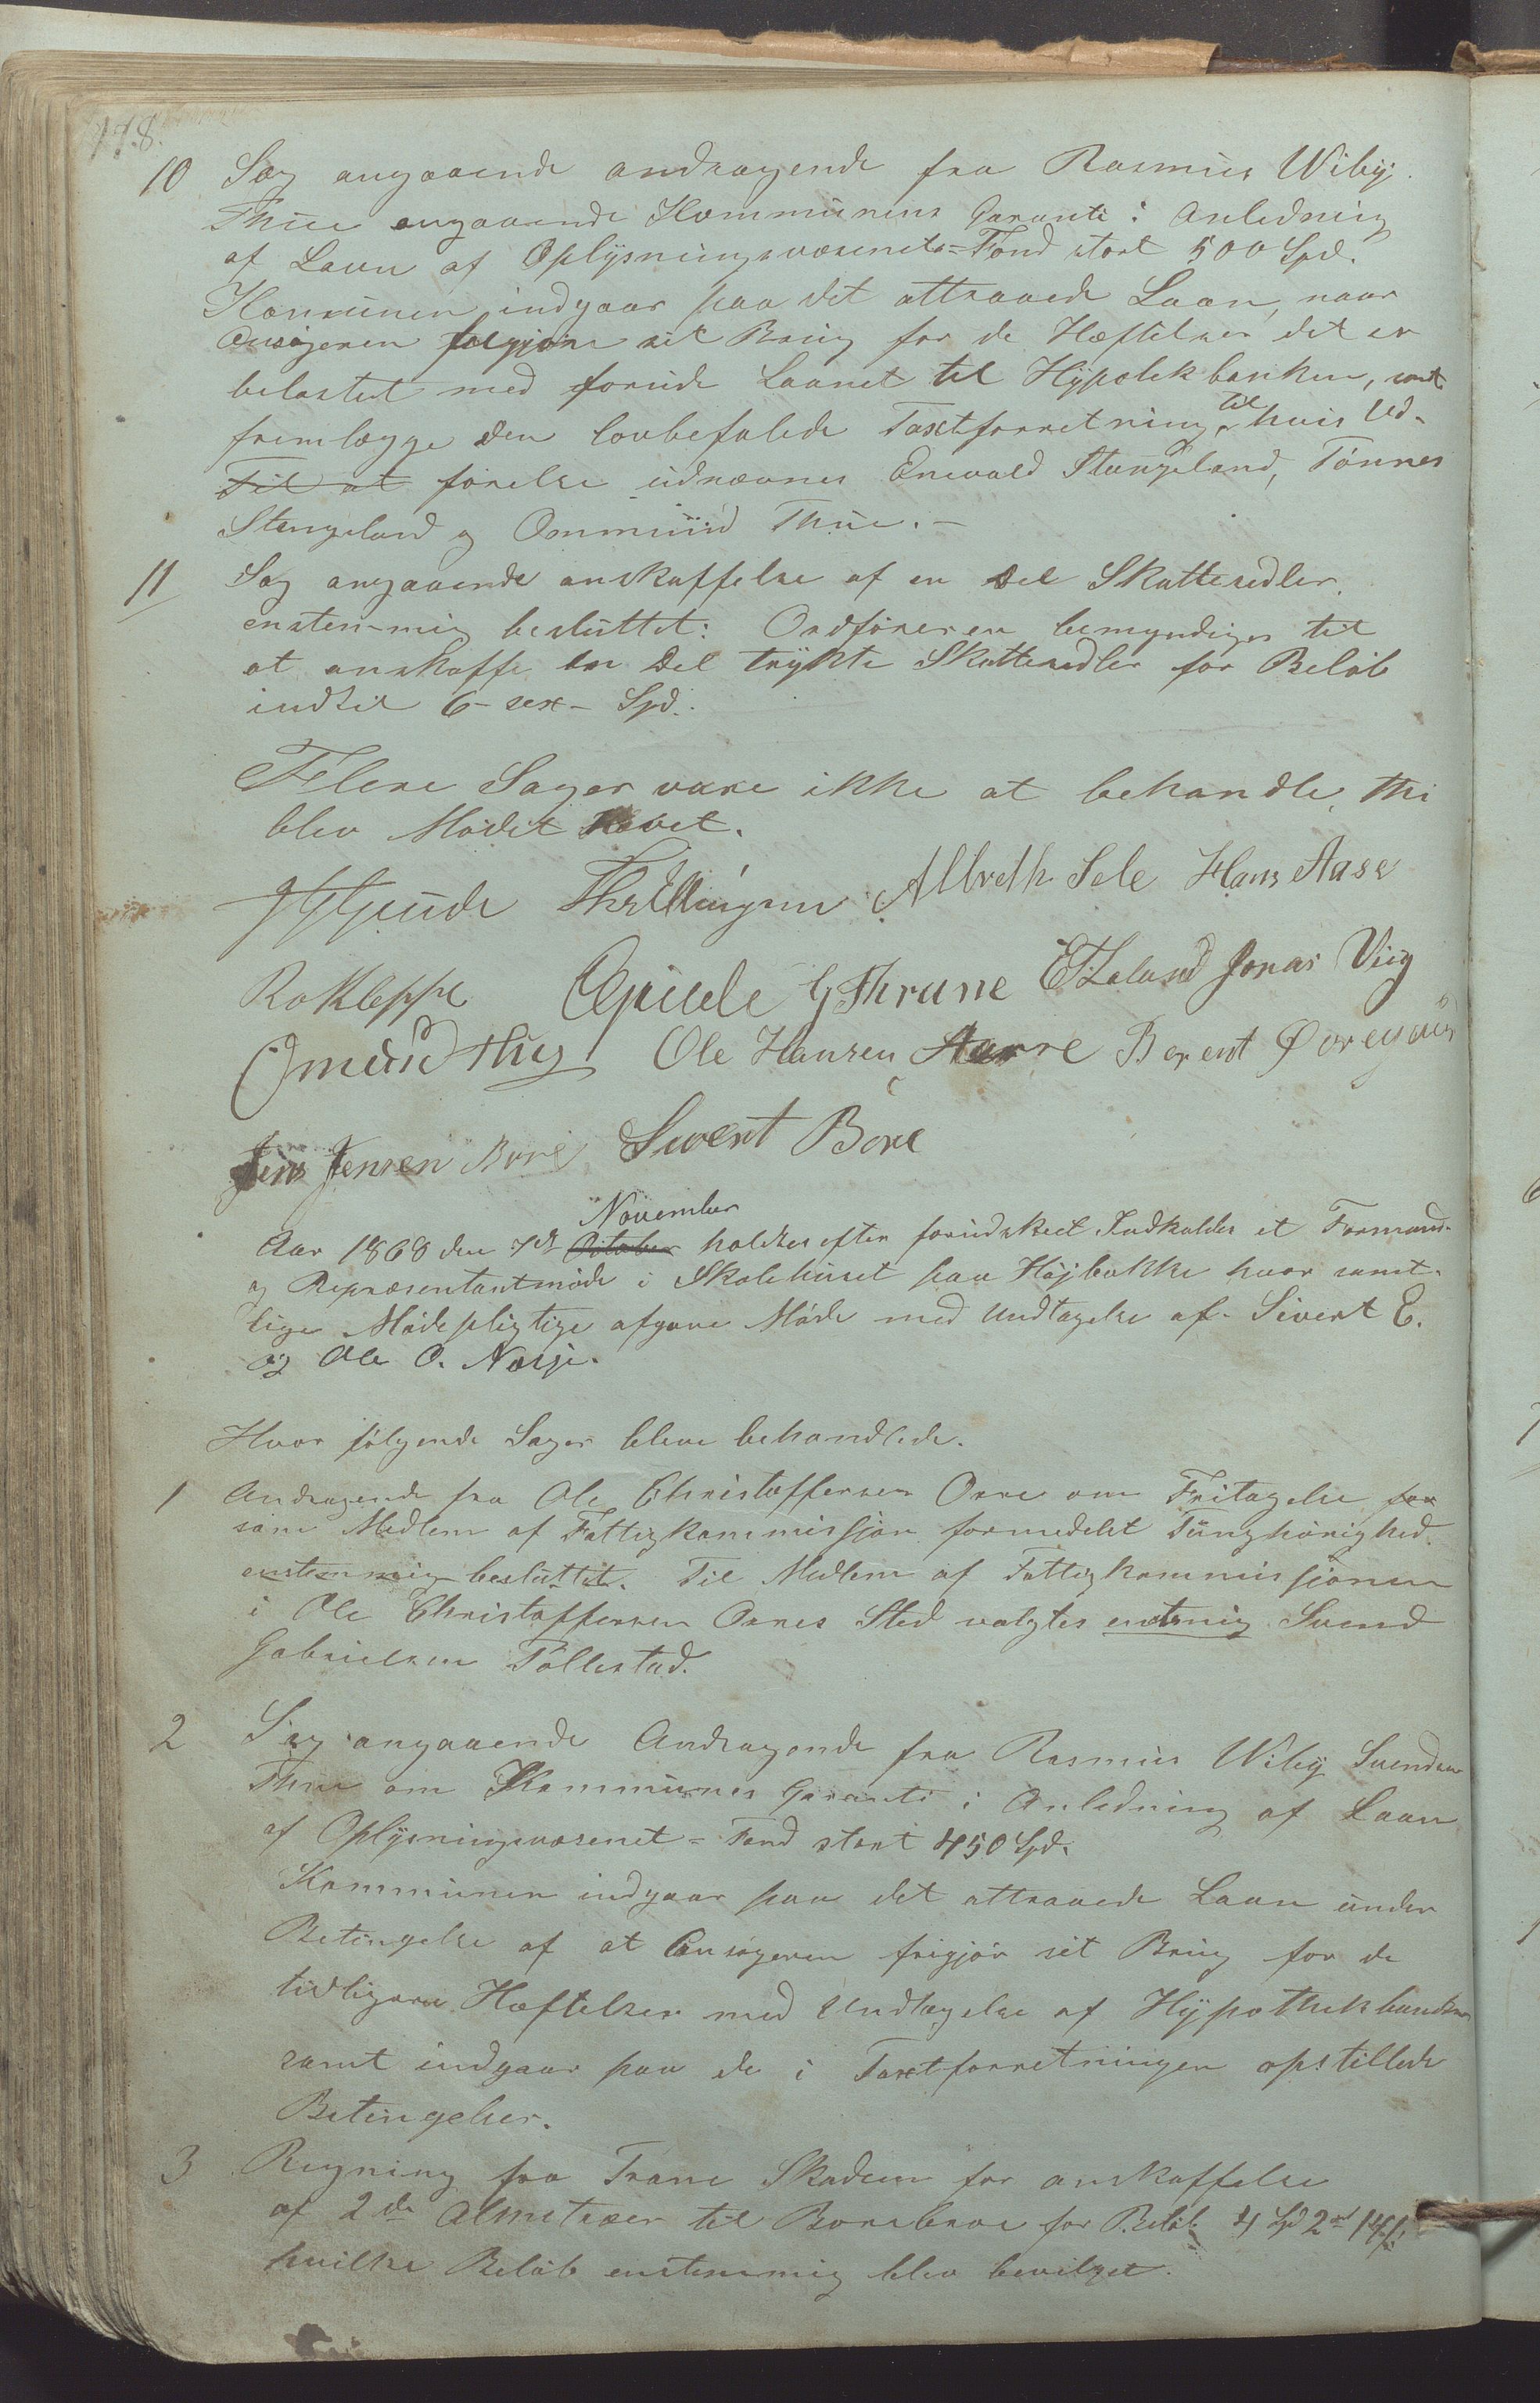 178.
10 Sag angaaende andragende fra Rasmus Wiby
Thue angaaende Kommunens Garanti i Anledning
af Laan af Oplysningsvæsenets=Fond stort 500 Spd.
Kommunen indgaar paa det attraaede Laan, naar
Ansøgeren frigjøre sit Brug for de Hæftelser det er
belastet med foruden Laanet til Hypotekbanken, samt
fremlægge den lovbefalede Taxtforretning, til hvis Ud-
Til at førelse udnævnes Enevald Stangeland, Tønnes
Stangeland og Ommund Thue. –
11 Sag angaaende anskaffelse af en Del Skattesedler.
enstemmig besluttet: Ordføreren bemyndiges til
at anskaffe en Del trykte Skattesedler for Beløb
indtil 6 – sex – Spd.
Flere Sager vare ikke at behandle, thi
blev Mødet hævet.
Albreth Sele Hans Aase
RoKleppe GThrane Jonas Viig
Omund thu Ole Hansen Aarre Berent Øvregaar
Jens Jensen Bore Sivert Bore
November
Aar 1868 den 7de October holdtes efter forudskeet Indkaldes et Formand-
og Repræsentantmøde i Skolehuset paa Højbakke hvor samt-
lige Mødepligtige afgave Møde med Undtagelse af Sivert E.
og Ole O. Næsje.
Hvor følgende Sager bleve behandlede.
1 Andragende fra Ole Christoffersen Orre om Fritagelse for
som Medlem af Fattigkommissjon formedelst Tunghørighed.
enstemmig besluttet. Til Medlem af Fattigkommissjonen
i Ole Christoffersen Orres Sted valgtes enstemig Svend
Gabrielsen Tøllestad.
2 Sag angaaende Andragende fra Rasmus Wiby Svendsen
Thue om Kommunes Garanti i Anledning af Laan
af Oplysningsvæsenet=Fond stort 450 Spd.
Kommunen indgaar paa det attraaede Laan under
Betingelse af at Ansøgeren frigjør sit Brug for de
tidligere Hæftelser med Undtagelse af Hypothekbanken
samt indgaar paa de i Taxtforretningen opstillede
Betingelser.
3 Regning fra Trane Skadem for anskaffelse
af 2de Almetræer til Borebroe for Beløb 4 Spd 2 14 s.
hvilke Beløb enstemmig blev bevilget.